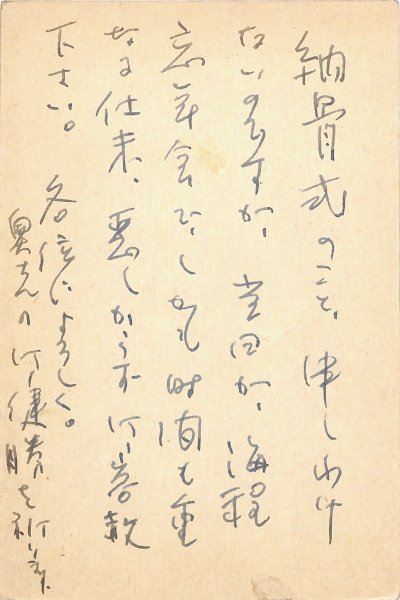 納骨式のこと、申しわけ
ないのですが、当日が、海程
忘年会でしかも時間も重
なる仕末、悪しからず御容赦
下さい。 各位によろしく。
奥さんの御健勝を祈ります。